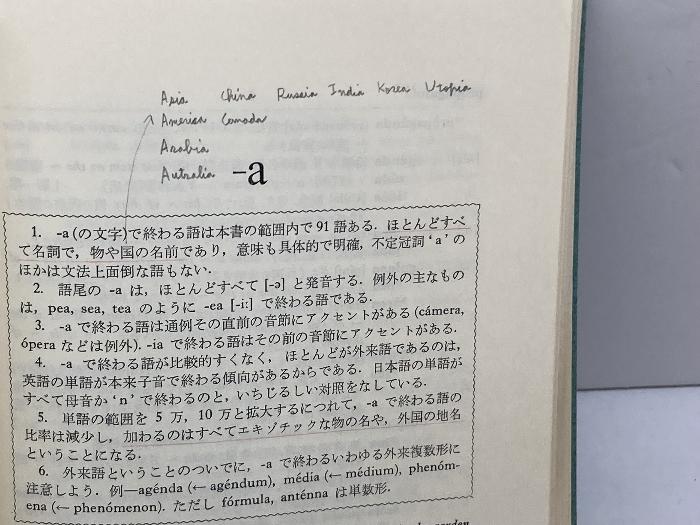 Asia China Russia India Korea Utopia
America Canada
Arabia
Autralia
-a
1. -a (の文字)で終わる語は本書の範囲内で91語ある. ほとんどすべ
て名詞で, 物や国の名前であり, 意味も具体的で明確, 不定冠詞‘a’の
ほかは文法上面倒な語もない.
2. 語尾の -a は, ほとんどすべて [-ə] と発音する. 例外の主なもの
は, pea, sea, tea のように -ea [-iː] で終わる語である.
3. -a で終わる語は通例その直前の音節にアクセントがある (cámera,
ópera などは例外). -ia で終わる語はその前の音節にアクセントがある.
4. -a で終わる語が比較的すくなく, ほとんどが外来語であるのは,
英語の単語が本来子音で終わる傾向があるからである. 日本語の単語が
すべて母音か‘n’で終わるのと, いちじるしい対照をなしている.
5. 単語の範囲を 5 万, 10 万と拡大するにつれて, -a で終わる語の
比率は減少し, 加わるのはすべてエキゾチックな物の名や, 外国の地名
ということになる.
6. 外来語ということのついでに, -a で終わるいわゆる外来複数形に
注意しよう. 例—agénda (← agéndum), média (← médium), phenóm-
ena (← phenómenon). ただし fórmula, anténna は単数形.